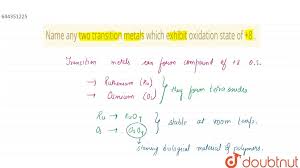 644351225
Name any two transition metals which exhibit oxidation state of +8.
Transition metals can form compound of +8 O.S.
→ Ruthenium (Ru)
→ Osmium (Os)
they form tetroxides
Ru → RuO4
Os → OsO4
stable at room temp.
staining biological material of polymers.
doubtnut